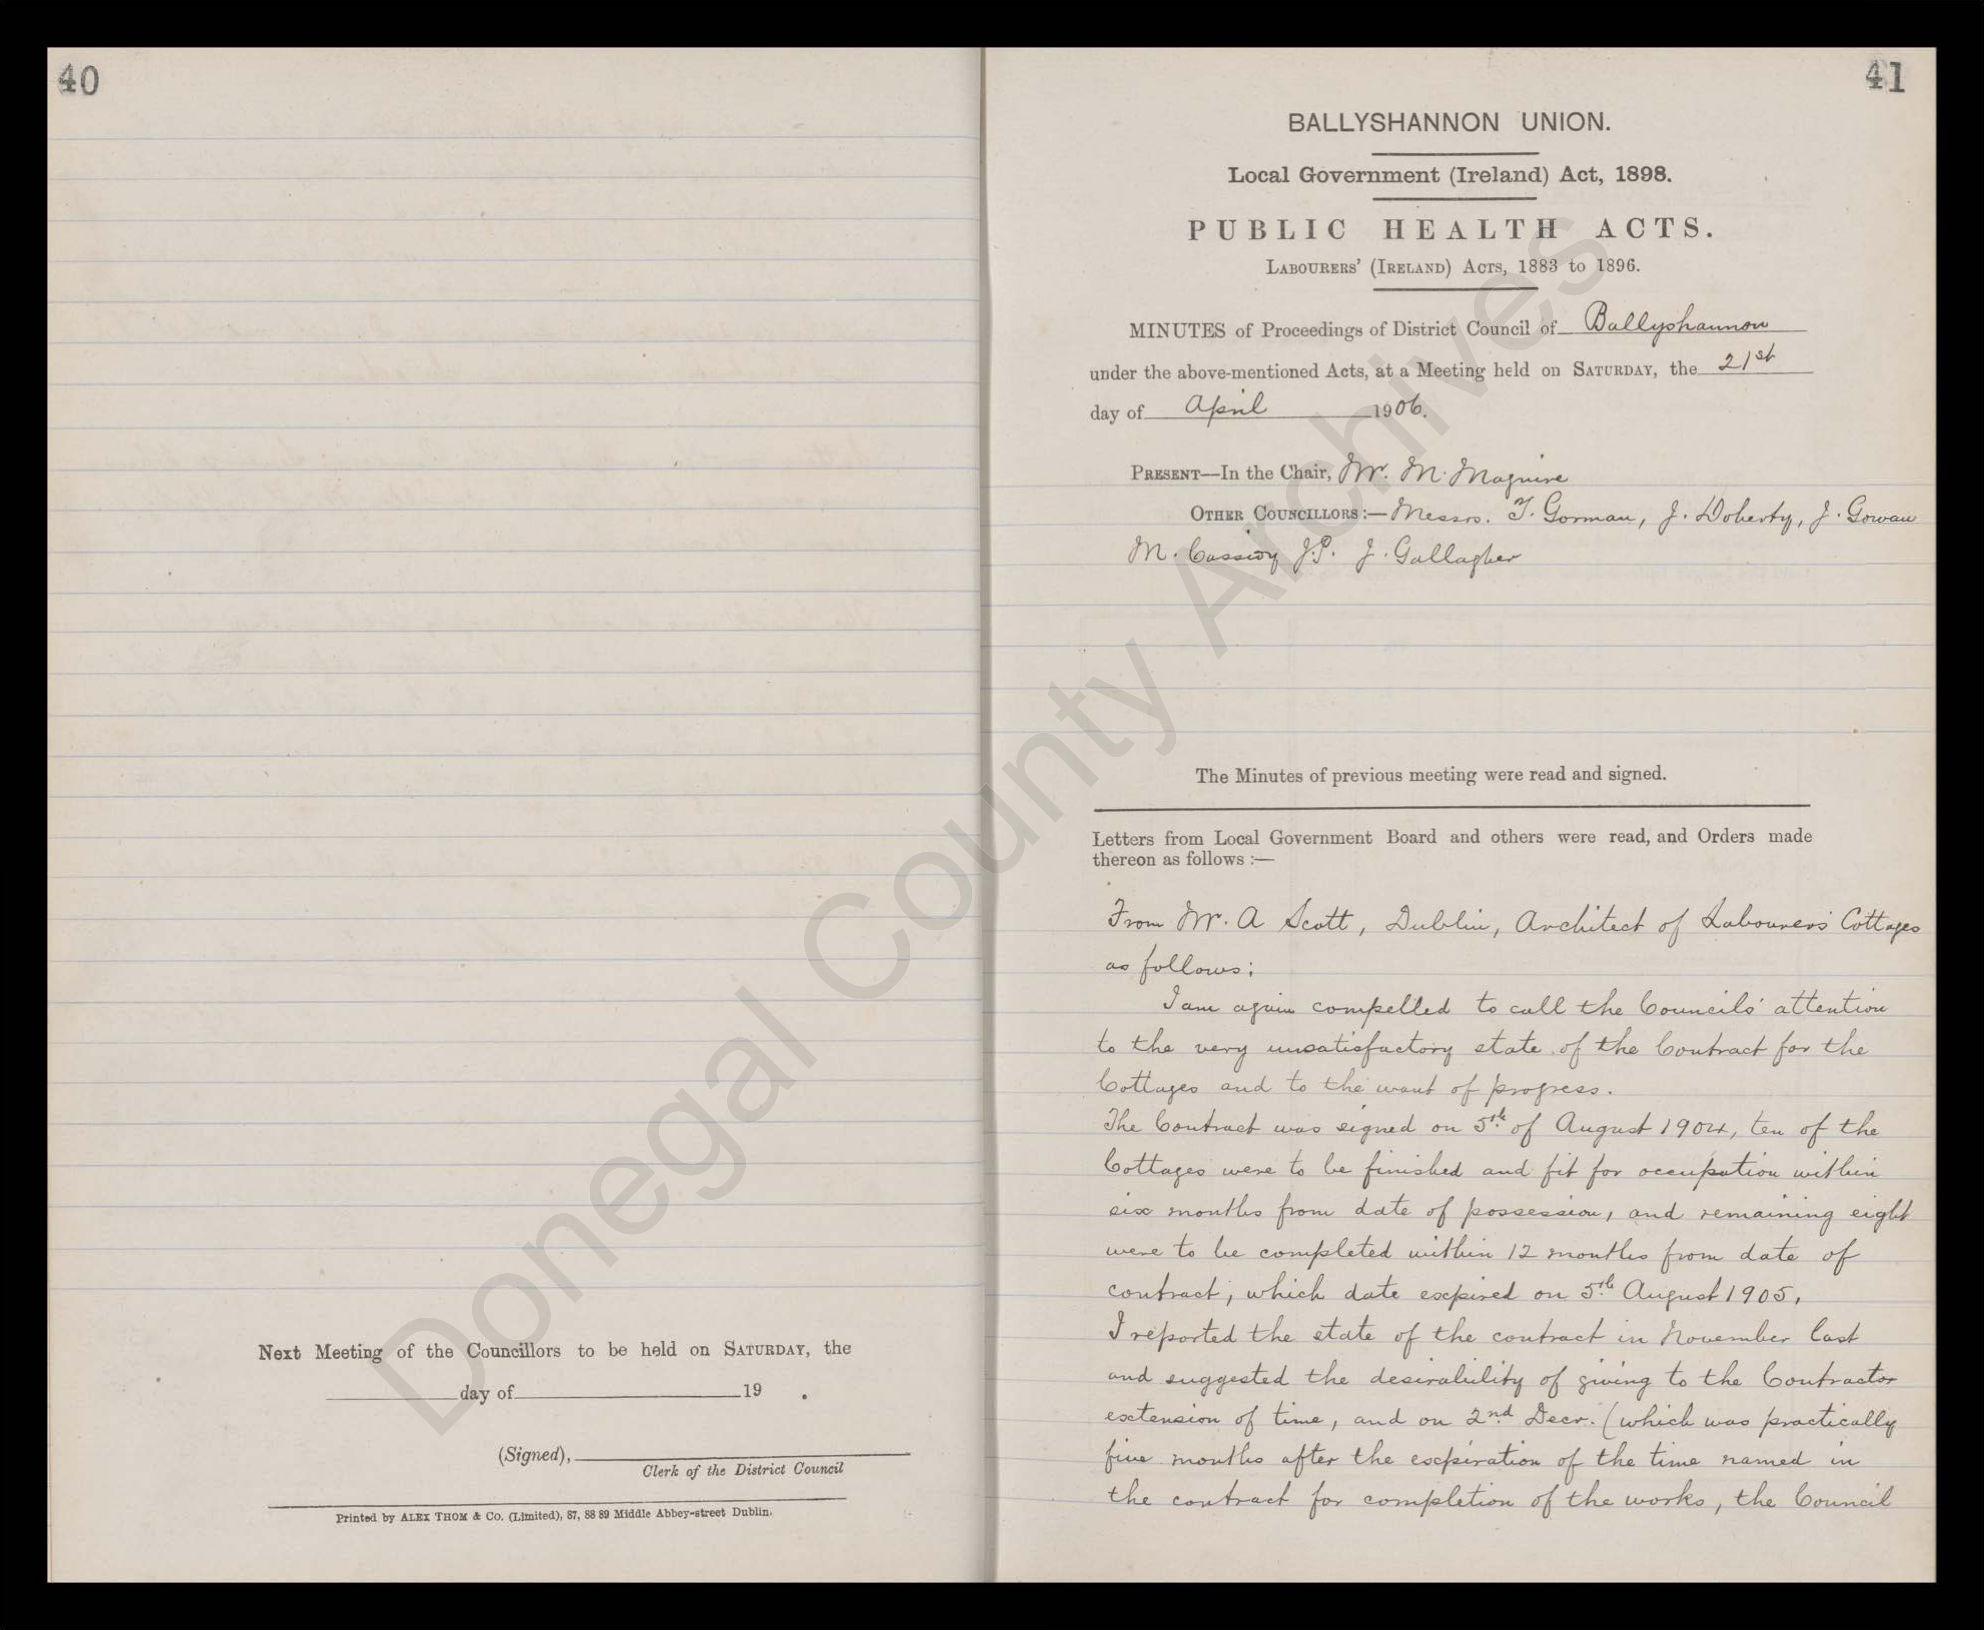 40
Next Meeting of the Councillors to be held on SATURDAY, the
day of 19 .
(Signed),
Clerk of the District Council
Printed by ALEX THOM & Co. (Limited), 87, 88 89 Middle Abbey-street Dublin.
41
BALLYSHANNON UNION.
Local Government (Ireland) Act, 1898.
PUBLIC HEALTH ACTS.
LABOURERS' (IRELAND) ACTS, 1883 to 1896.
MINUTES of Proceedings of District Council of Ballyshannon
under the above-mentioned Acts, at a Meeting held on SATURDAY, the 21st
day of April 1906.
PRESENT—In the Chair, Mr. M. Maguire
OTHER COUNCILLORS :— Messrs. T. Gorman, J. Doherty, J. Gowan
M. Cassidy J.P. J. Gallagher
The Minutes of previous meeting were read and signed.
Letters from Local Government Board and others were read, and Orders made
thereon as follows :—
From Mr. A Scott, Dublin, Architect of Labourers' Cottages
as follows:
I am again compelled to call the Councils' attention
to the very unsatisfactory state of the Contract for the
Cottages and to the want of progress.
The Contract was signed on 5th of August 1904, ten of the
Cottages were to be finished and fit for occupation within
six months from date of possession, and remaining eight
were to be completed within 12 months from date of
contract, which date expired on 5th August 1905.
I reported the state of the contract in November last
and suggested the desirability of giving to the Contractor
extension of time, and on 2nd Decr. (which was practically
five months after the expiration of the time named in
the contract for completion of the works, the Council
Donegal County Archives